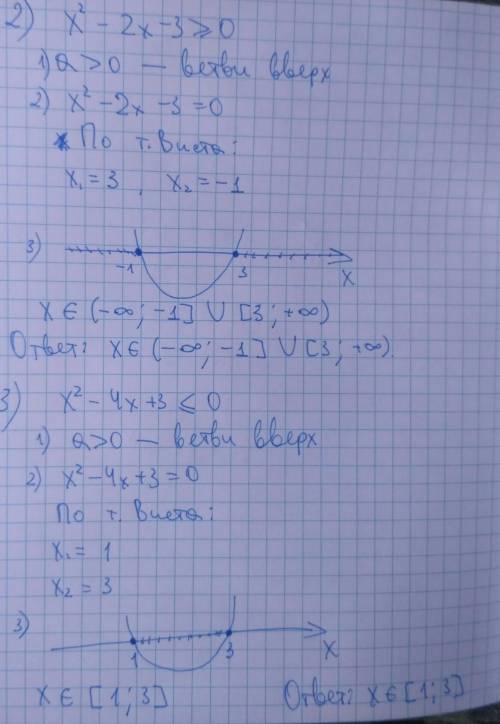 2) x² - 2x - 3 ≥ 0
1) a > 0 — ветви вверх
2) x² - 2x - 3 = 0
По т. Виета:
x₁ = 3, x₂ = -1
3)
-1 3 x
x ∈ (-∞; -1] ∪ [3; +∞)
Ответ: x ∈ (-∞; -1] ∪ [3; +∞).
3) x² - 4x + 3 ≤ 0
1) a > 0 — ветви вверх
2) x² - 4x + 3 = 0
По т. Виета:
x₁ = 1
x₂ = 3
3)
1 3 x
x ∈ [1; 3] Ответ: x ∈ [1; 3]